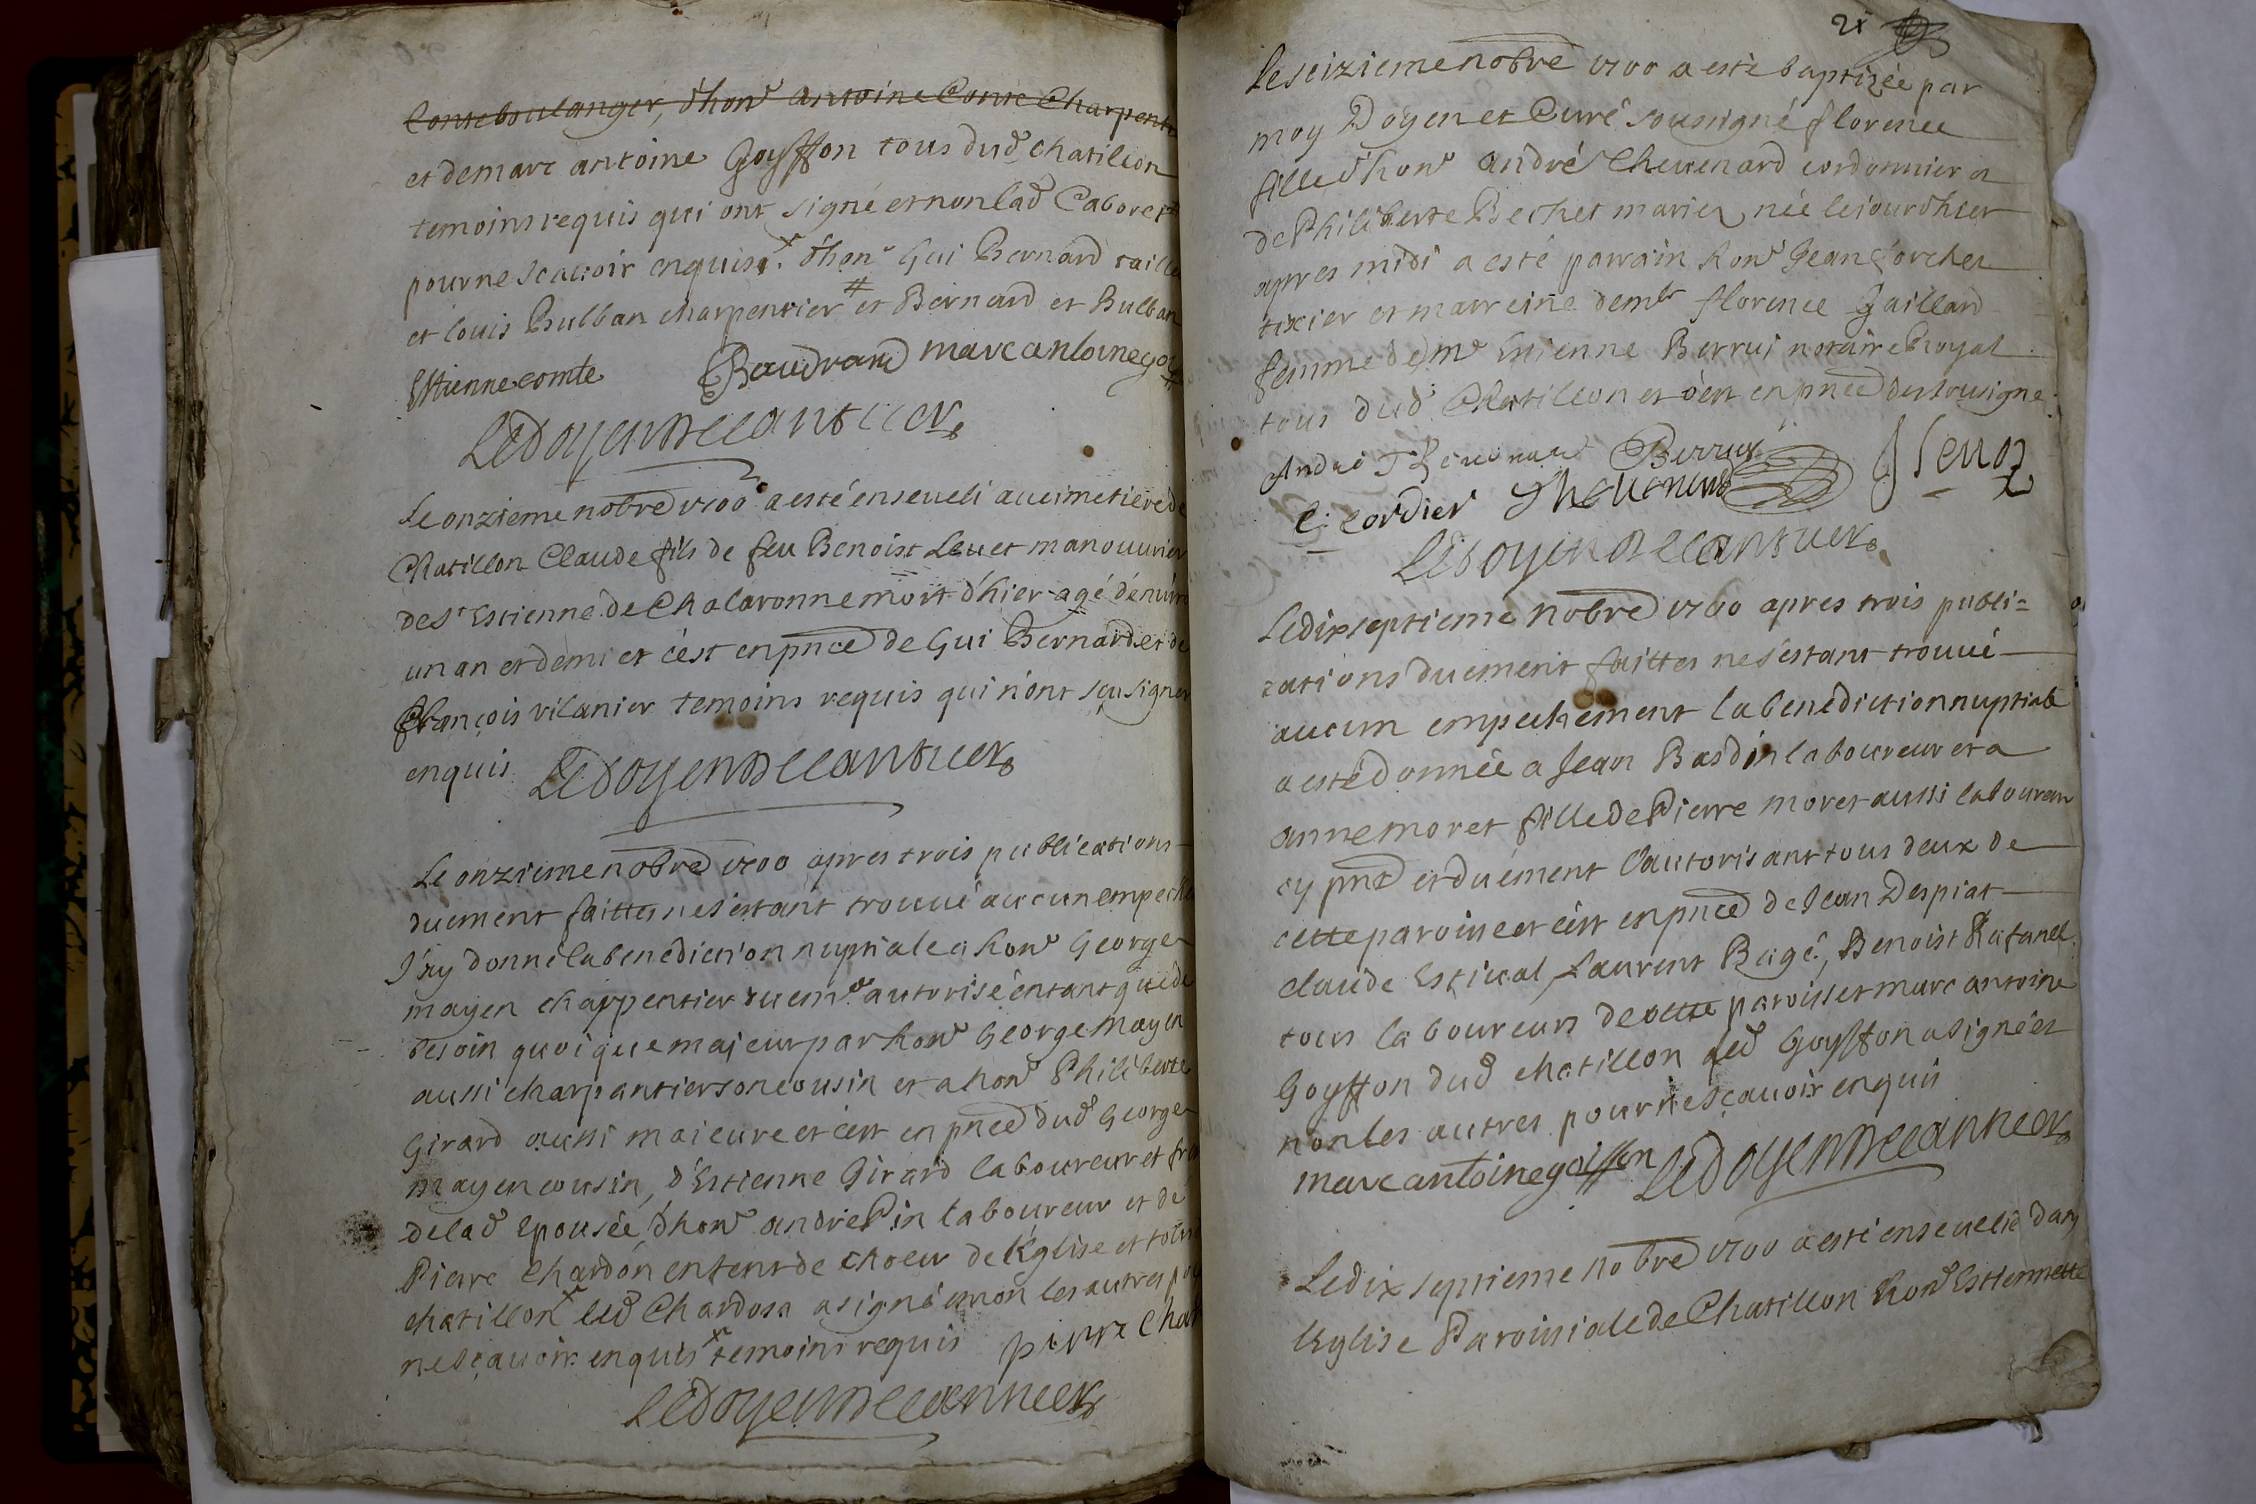 Conte boulanger, d'hon^e Antoine Conte Charpent
et de marc antoine Goyffon tous dud chatillon
temoins requis qui ont signé et non lad Caboret
pour ne scavoir enquis. d'hon^e Gui Bernard taill
et louis Bulban charpentier # et Bernard et Bulban
Estienne comte Baudrand marc antoine goi
Le doyen
Le onzieme nobre 1700 a esté enseveli au cimetiere de
Chatillon Claude fils de feu Benoist Levet manouvrier
de St Estienne de Chalaronne mort d'hier agé d'envir
un an et demi et c'est en pnce de Gui Bernard et de
François vilanier temoins requis qui n'ont sçu signer
enquis Le doyen
Le onzieme nobre 1700 apres trois publications
duement faittes ne s'estant trouvé aucun empeche
J'ay donné la benediction nuptiale a hon^e George
mayen charpentier autorisé entant que de
besoin quoique majeur par hon^e George Mayen
aussi charpantier son cousin et a hon^e Philiberte
Girard aussi majeure et c'est en pnce dud George
mayen cousin, d'Estienne Girard laboureur et fr
de lad epousée, d'hon^e andre Pin laboureur et de
Pierre Chardon enfent de choeur de l'église et tous
chatillon led Chardon a signé et non les autres po
ne sçavoir enquis temoins requis pierre Char
Le doyen
21
Le seizieme nobre 1700 a esté baptizée par
moy Doyen et Curé sousigné florence
fille d'hon^e andré Chevenard cordonnier et
de Philiberte Bechet mariez née le jour d'hier
apres midi a esté parrain hon^e Jean
tixier et marreine dem^le florence Gaillard
femme de m^e Estienne Berrui notaire Royal
tous dud Chatillon et c'est en pnce des sousigné
André Thevenard Berruy
C. Cordier Thevenard
Le doyen
Le dix septieme nobre 1700 apres trois publi=
cations duement faittes ne s'estant trouvé
aucun empechement la benediction nuptiale
a esté donnée a Jean Basdin laboureur et a
anne moret fille de Pierre moret aussi laboureur
cy pnt et duement l'autorisant tous deux de
cette paroisse et c'est en pnce de Jean Despiat
claude Estival Laurent Bagé, Benoist Rafanel
tous laboureurs de cette paroisse et marc antoine
Goyffon dud chatillon led Goyffon a signé et
non les autres pour ne sçavoir enquis
marc antoine goiffon Le doyen
Le dix septieme nobre 1700 a esté ensevelie dans
l'Eglise Paroissiale de Chatillon hon^e Estiennette